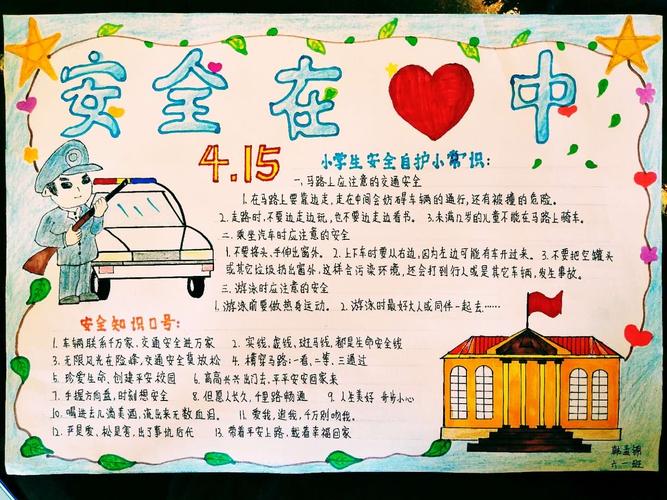 安全在中
4.15
小学生安全自护小常识:
一.马路上应注意的交通安全
1.在马路上要靠边走,走在中间会妨碍车辆的通行,还有被撞的危险。
2.走路时,不要边走边玩,也不要边走边看书。 3.未满12岁的儿童不能在马路上骑车。
二.乘坐汽车时应注意的安全
1.不要将头、手伸出窗外。 2.上下车时要从右边,因为左边可能有车开过来。 3.不要把空罐头
或其它垃圾扔出窗外,这样会污染环境,还会打到行人或是其它车辆,发生事故。
三.游泳时应注意的安全
1.游泳前要做热身运动。 2.游泳时最好大人或同伴一起去……
安全知识口号:
1.车辆联系千万家,交通安全进万家 2.实线,虚线,斑马线,都是生命安全线
3.无限风光在险峰,交通安全莫放松 4.横穿马路:一看,二等,三通过
5.珍爱生命,创建平安校园 6.高高兴兴出门去,平平安安回家来
7.手握方向盘,时刻想安全 8.但愿人长久,千里路畅通 9.人生美好 步步小心
10.喝进去几滴美酒,流出来无数血泪。 11.爱我,追我,千万别吻我。
12.严是爱,松是害,出了事坑后代 13.带着平安上路,载着幸福回家
六一班